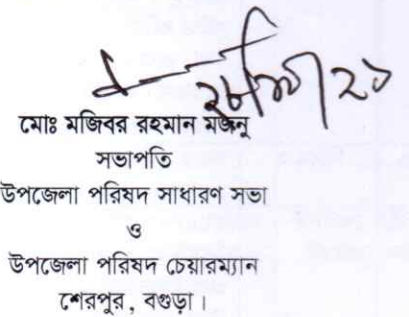 মোঃ মজিবর রহমান মজনু
সভাপতি
উপজেলা পরিষদ সাধারণ সভা
ও
উপজেলা পরিষদ চেয়ারম্যান
শেরপুর, বগুড়া।